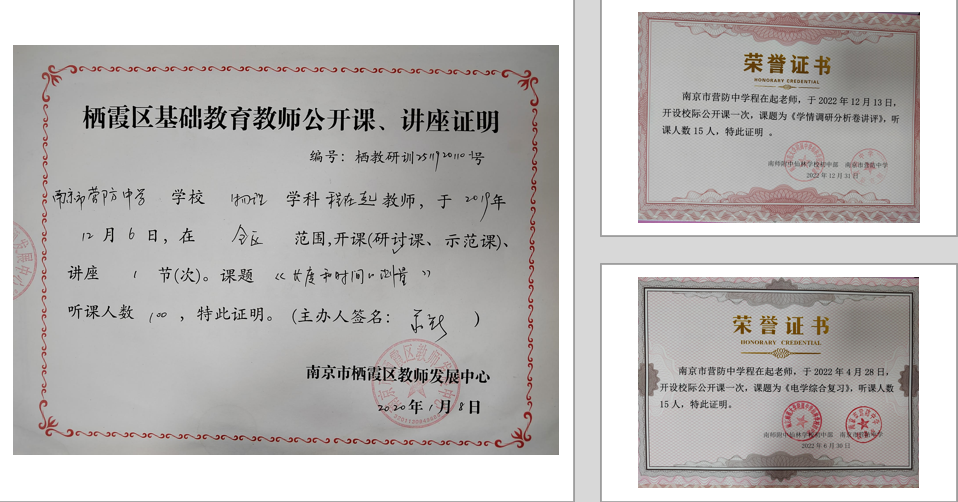 栖霞区基础教育教师公开课、讲座证明
编号：栖教研训
南京市营防中学 学校 物理 学科 程在起 教师，于 2019 年
12 月 6 日，在 全区 范围，开课(研讨课、示范课)、
讲座 1 节(次)。课题 《长度和时间的测量》
听课人数 100 ，特此证明。(主办人签名： )
南京市栖霞区教师发展中心
2020 年 1 月 8 日
荣誉证书
HONORARY CREDENTIAL
南京市营防中学程在起老师，于 2022 年 12 月 13 日，
开设校际公开课一次，课题为《学情调研分析卷讲评》，听
课人数 15 人，特此证明 。
南师附中仙林学校初中部 南京市营防中学
2022 年 12 月 31 日
荣誉证书
HONORARY CREDENTIAL
南京市营防中学程在起老师，于 2022 年 4 月 28 日，
开设校际公开课一次，课题为《电学综合复习》，听课人数
15 人，特此证明。
南师附中仙林学校初中部 南京市营防中学
2022 年 6 月 30 日